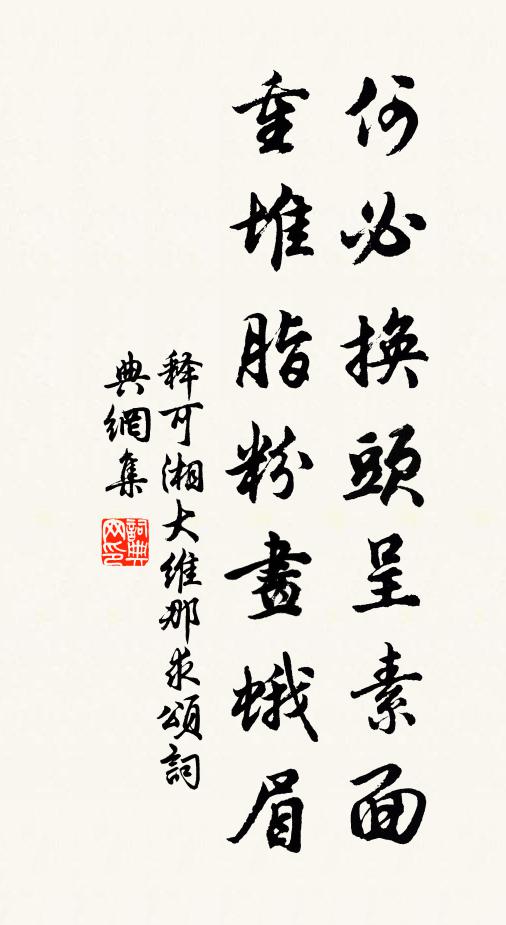 何必換頭呈素面
重堆脂粉畫蛾眉
释可湘大維那求頌詞
典網集
詞典網印